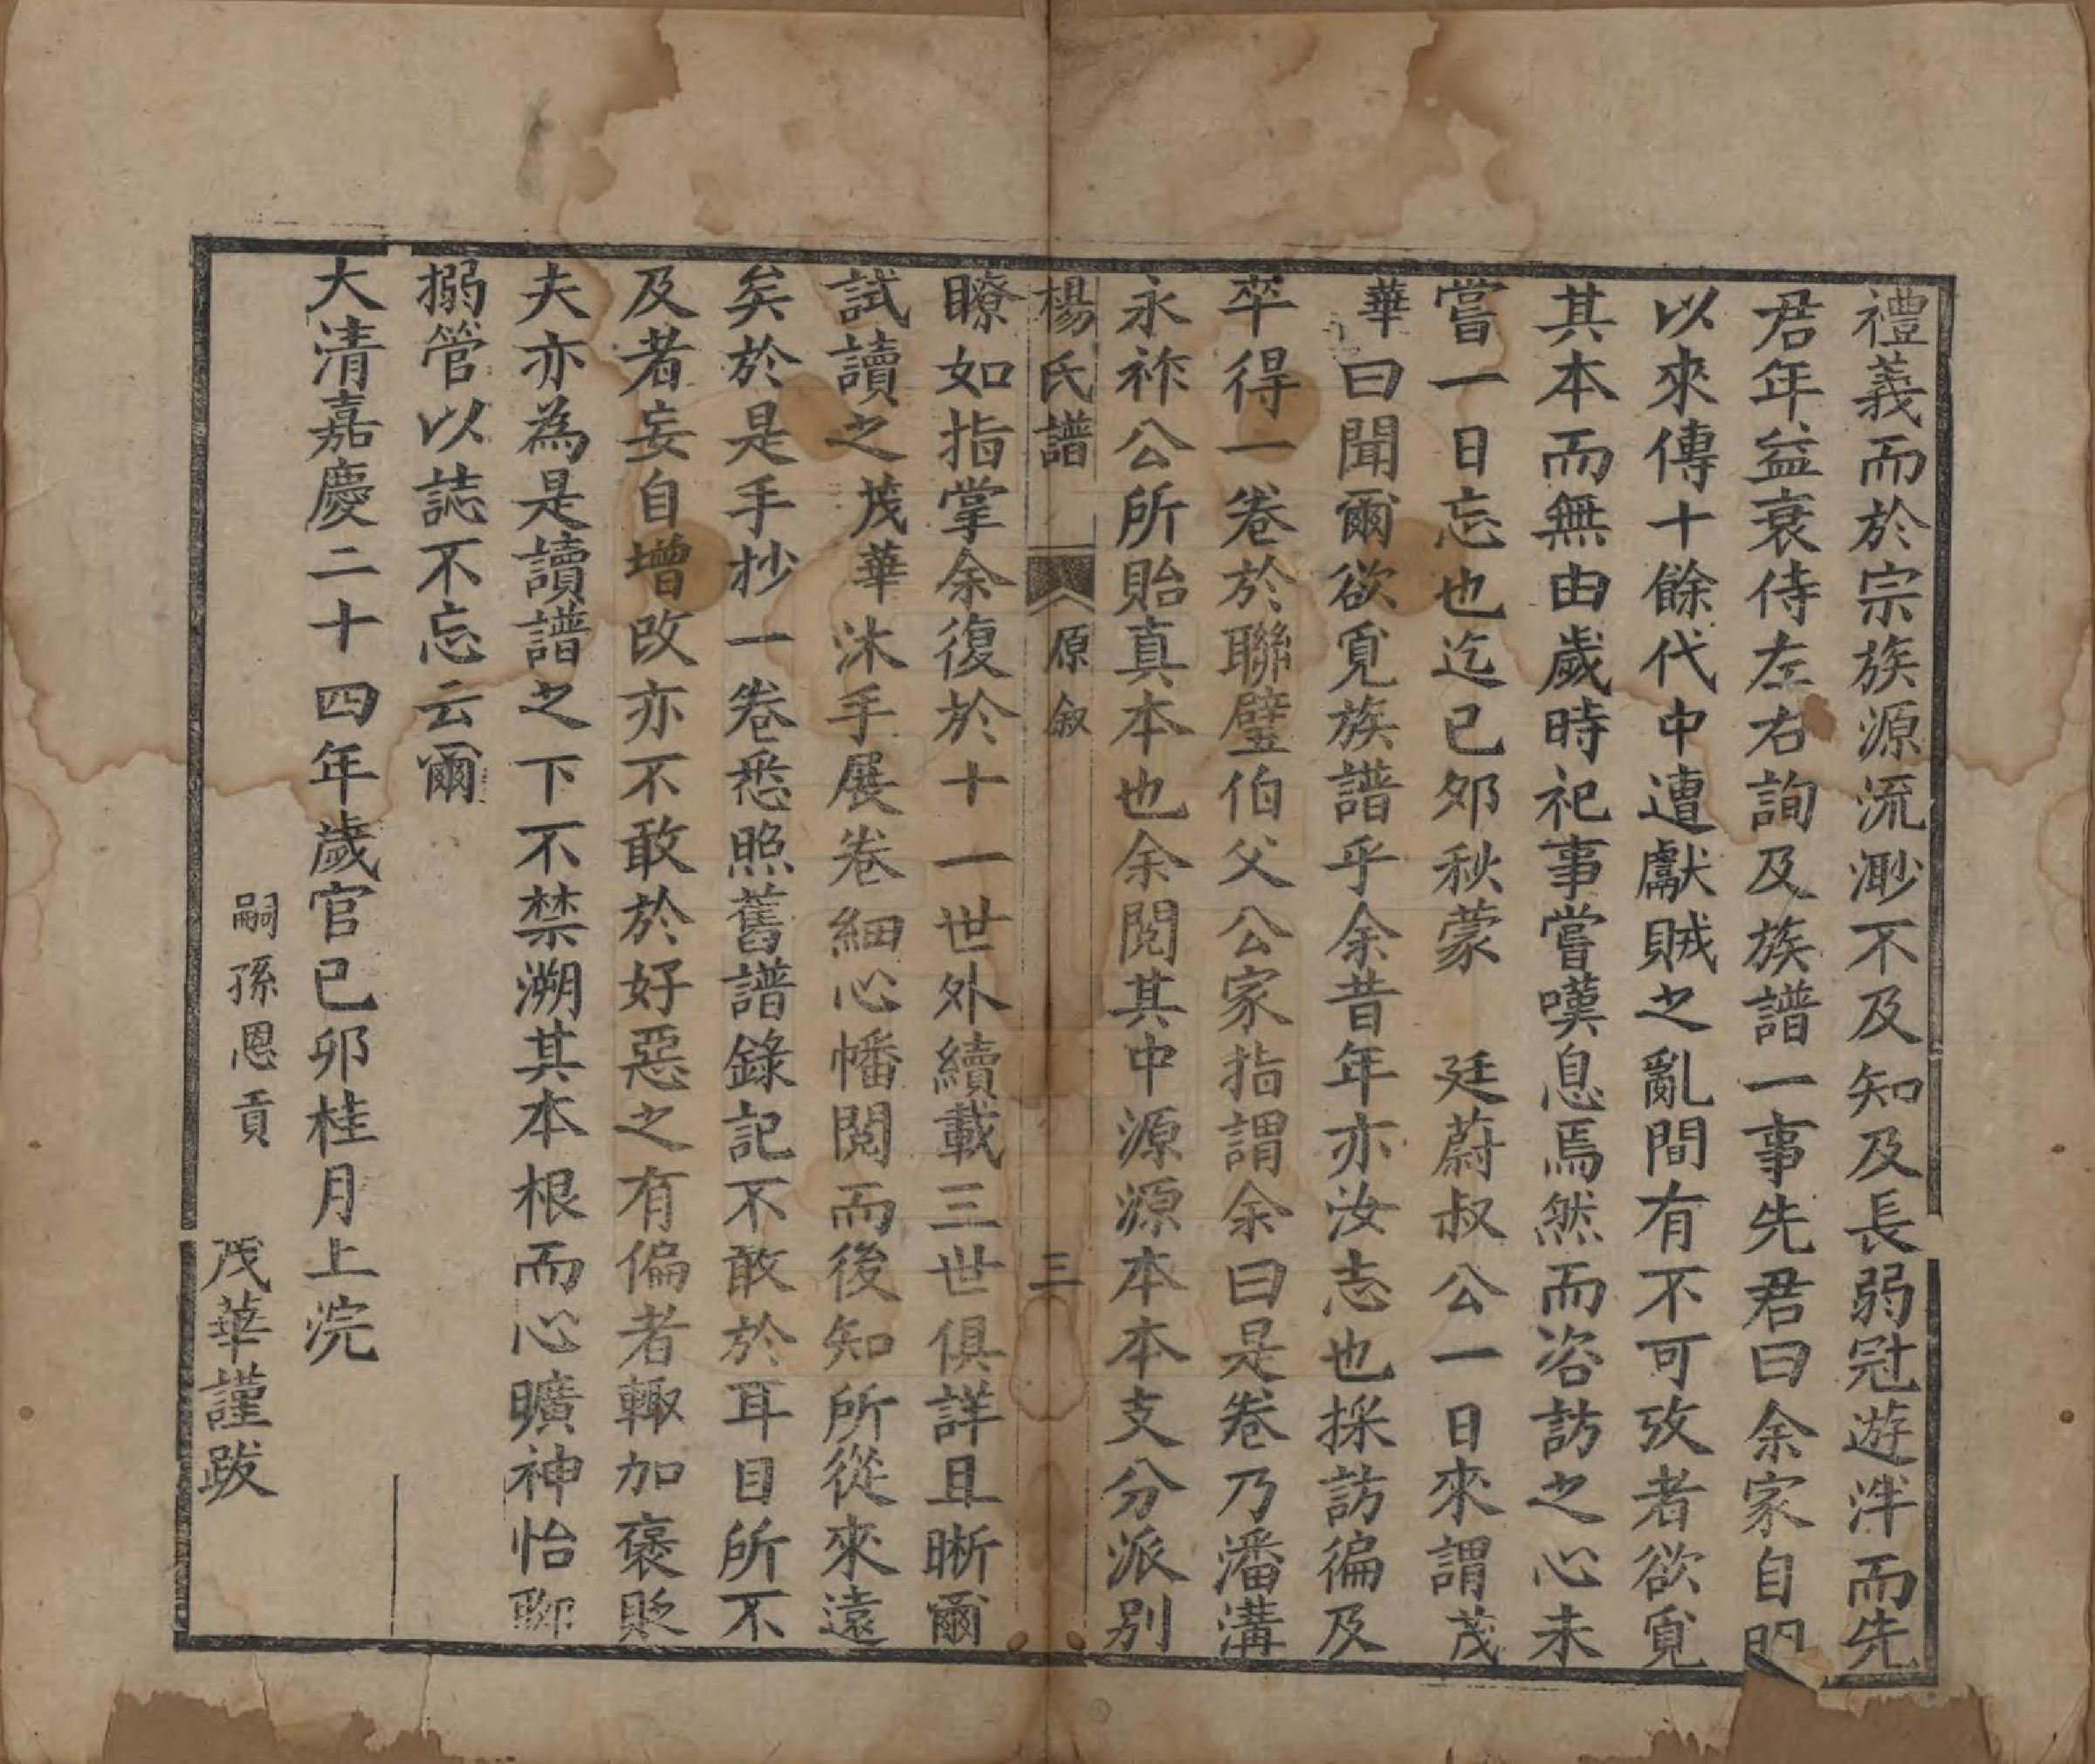 禮義而於宗族源流渺不及知及長弱冠遊泮而先
君年益衰侍左右詢及族譜一事先君曰余家自明
以來傳十餘代中遭獻賊之亂間有不可攷者欲覓
其本而無由歲時祀事嘗嘆息焉然而咨訪之心未
嘗一日忘也迄己夘秋蒙　廷蔚叔公一日來謂茂
華曰聞爾欲覓族譜乎余昔年亦汝志也採訪徧及
卒得一卷於聯璧伯父公家指謂余曰是卷乃潘溝
永祚公所貽真本也余閱其中源源本本支分派別
楊氏譜　原敘　三
瞭如指掌余復於十一世外續載三世俱詳且晰爾
試讀之茂華沐手展卷細心幡閱而後知所從來遠
矣於是手抄一卷悉照舊譜錄記不敢於耳目所不
及者妄自增改亦不敢於好惡之有偏者輙加褒貶
夫亦為是讀譜之下不禁溯其本根而心曠神怡聊
搦管以誌不忘云爾
大清嘉慶二十四年歲官己卯桂月上浣
嗣孫恩貢　茂華謹跋